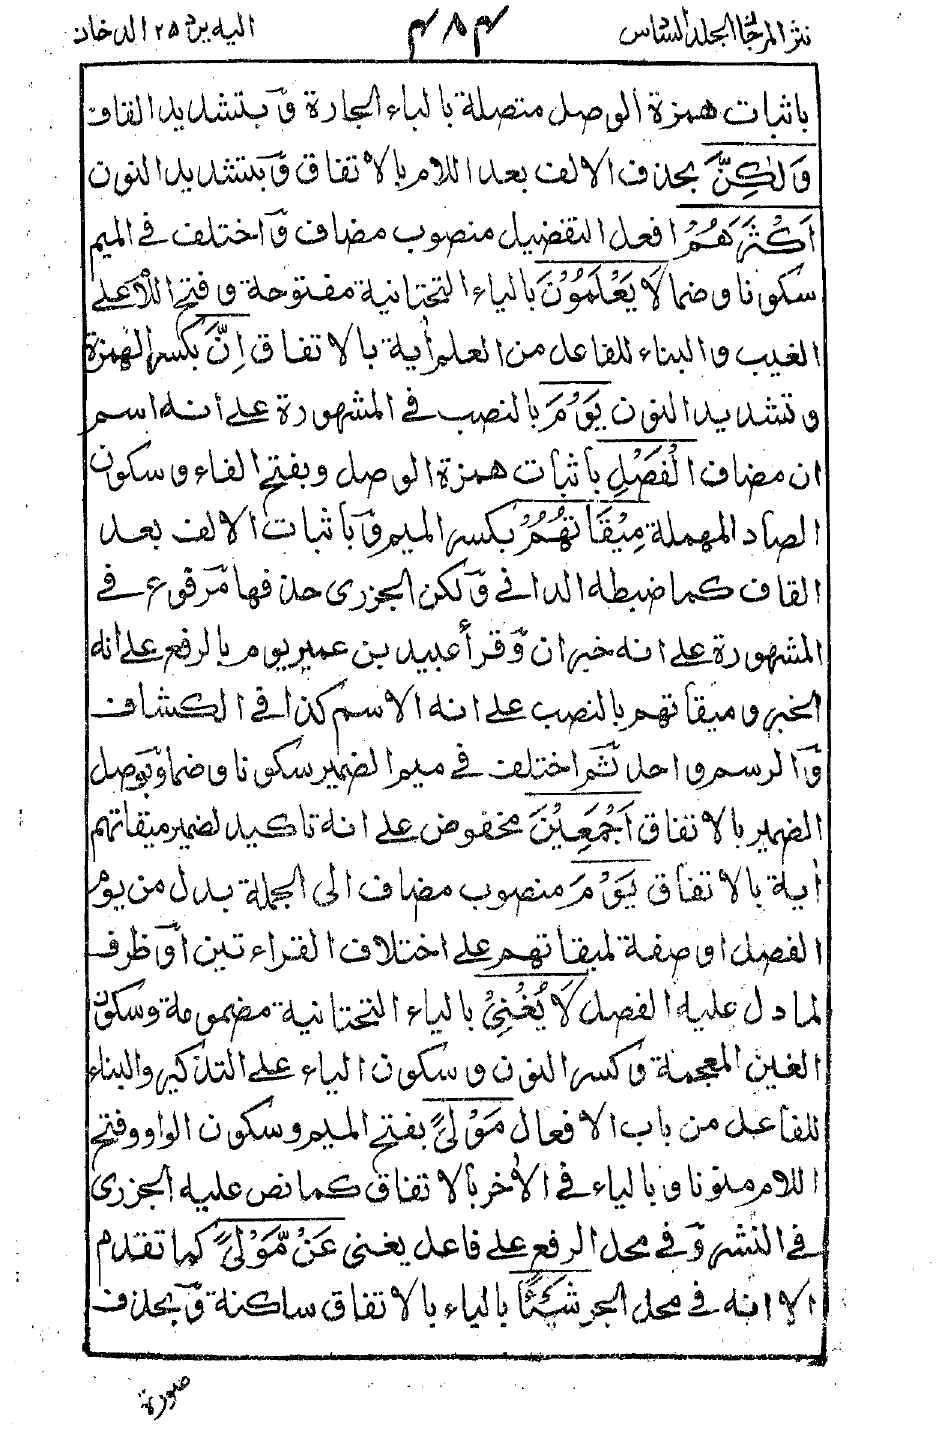 نثر المرجان المجلد السادس
٤٨٤
اليه يرد ٢٥ الدخان
باثبات همزة الوصل متصلة بالباء الجارة وبتشديد القاف
وَلٰكِنَّ بحذف الالف بعد اللام بالاتفاق وبتشديد النون
اَكْثَرَهُمْ افعل التفضيل منصوب مضاف واختلف في الميم
سكونا وضما لَا يَعْلَمُوْنَ بالياء التحتانية مفتوحة وفتح اللام على
الغيب والبناء للفاعل من العلم أية بالاتفاق اِنَّ بكسر الهمزة
وتشديد النون يَوْمَ بالنصب في المشهورة على انه اسم
ان مضاف الْفَصْلِ باثبات همزة الوصل وبفتح الفاء وسكون
الصاد المهملة مِيْقَاتُهُمْ بكسر الميم وباثبات الالف بعد
القاف كما ضبطه الداني ولكن الجزرى حذفها مرفوع في
المشهورة على انه خبر ان وقرأ عبيد بن عمير يوم بالرفع على انه
الخبر وميقاتهم بالنصب على انه الاسم كذا في الكشاف
والرسم واحد ثم اختلف في ميم الضمير سكونا وضما وبوصل
الضمير بالاتفاق اَجْمَعِيْنَ مخفوض على انه تاكيد لضمير ميقاتهم
أية بالاتفاق يَوْمَ منصوب مضاف الى الجملة بدل من يوم
الفصل او صفة لميقاتهم على اختلاف القراءتين او ظرف
لما دل عليه الفصل لَا يُغْنِيْ بالياء التحتانية مضمومة وسكون
الغين المعجمة وكسر النون وسكون الياء على التذكير والبناء
للفاعل من باب الافعال مَوْلًى بفتح الميم وسكون الواو وفتح
اللام منونا وبالياء في الأخر بالاتفاق كما نص عليه الجزرى
في النشر وفي محل الرفع على فاعل يغنى عَنْ مَّوْلًى كما تقدم
الا انه في محل الجر شَيْئًا بالياء بالاتفاق ساكنة وبحذف
صورة